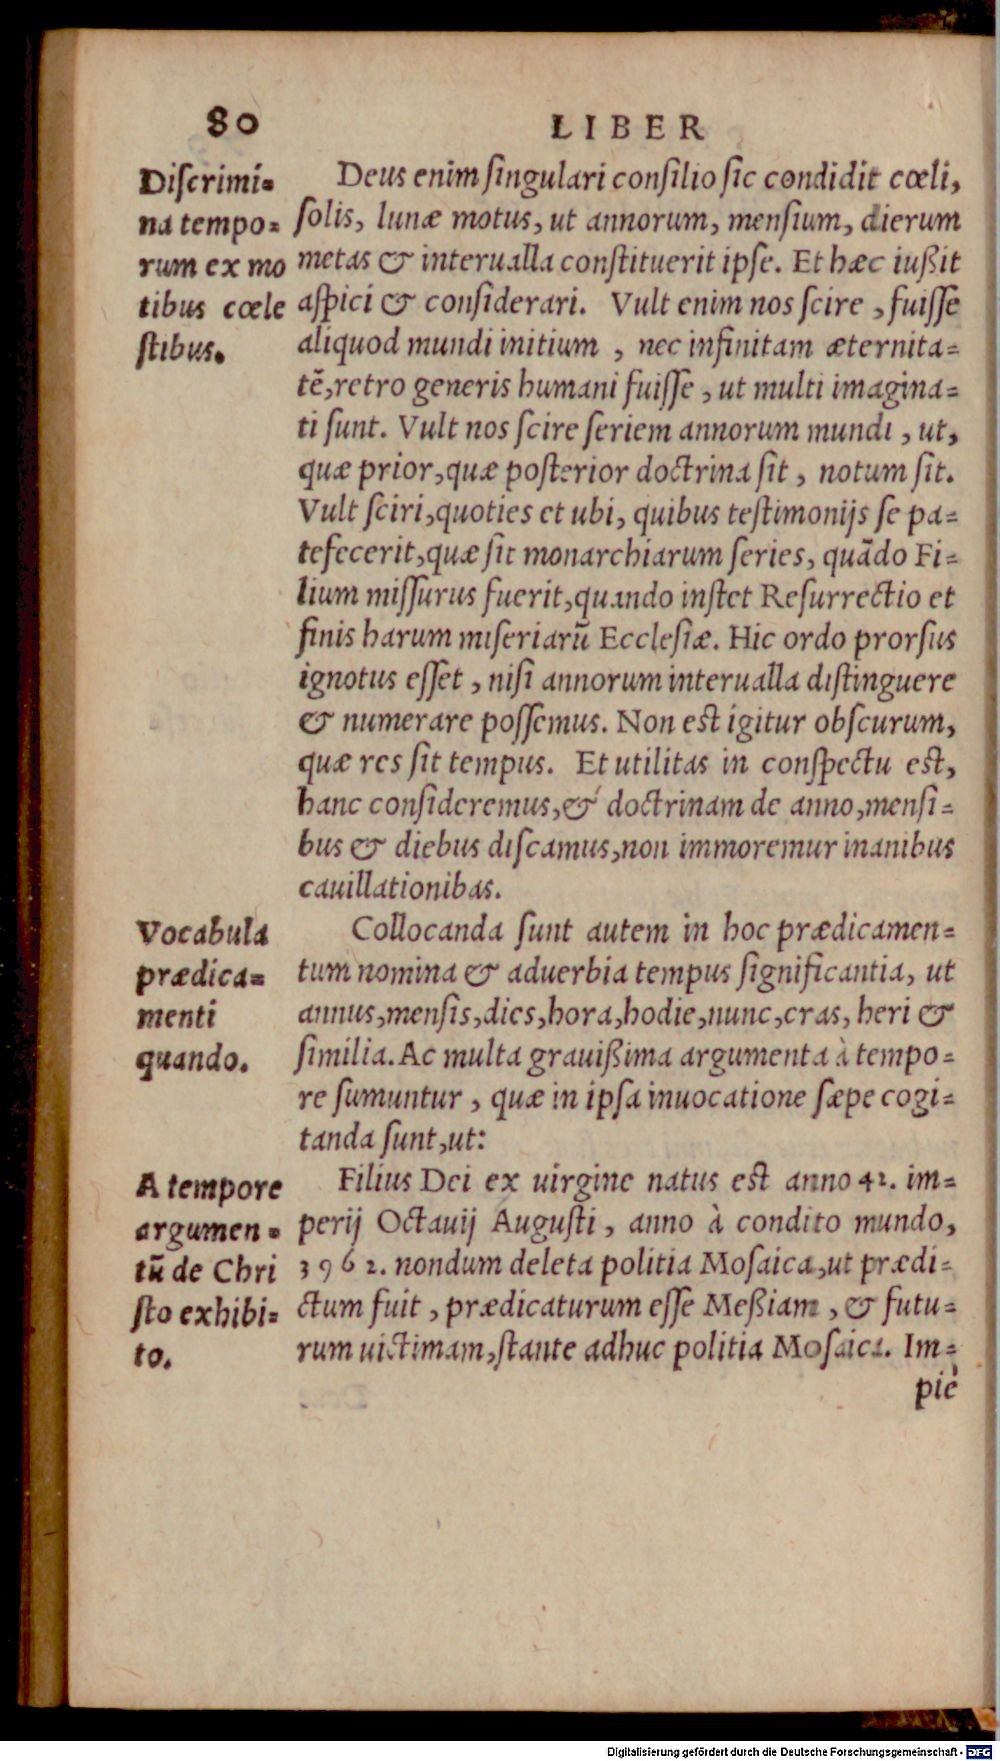 80
LIBER
Diſcrimi=
na tempo=
rum ex mo
tibus cœle
ſtibus.
Deus enim ſingulari conſilio ſic condidit cœli,
ſolis, lunæ motus, ut annorum, menſium, dierum
metas & interualla conſtituerit ipſe. Et hæc iußit
aſpici & conſiderari. Vult enim nos ſcire, fuiſſe
aliquod mundi initium, nec infinitam æternita=
tē, retro generis humani fuiſſe, ut multi imagina=
ti ſunt. Vult nos ſcire ſeriem annorum mundi, ut,
quæ prior, quæ poſterior doctrina ſit, notum ſit.
Vult ſciri, quoties et ubi, quibus teſtimonijs ſe pa=
tefecerit, quæ ſit monarchiarum ſeries, quādo Fi=
lium miſſurus fuerit, quando inſtet Reſurrectio et
finis harum miſeriarū Eccleſiæ. Hic ordo prorſus
ignotus eſſet, niſi annorum interualla diſtinguere
& numerare poſſemus. Non eſt igitur obſcurum,
quæ res ſit tempus. Et utilitas in conſpectu eſt,
hanc conſideremus, & doctrinam de anno, menſi=
bus & diebus diſcamus, non immoremur inanibus
cauillationibas.
Vocabula
prædica=
menti
quando.
Collocanda ſunt autem in hoc prædicamen=
tum nomina & aduerbia tempus ſignificantia, ut
annus, menſis, dies, hora, hodie, nunc, cras, heri &
ſimilia. Ac multa grauißima argumenta à tempo=
re ſumuntur, quæ in ipſa inuocatione ſæpe cogi=
tanda ſunt, ut:
A tempore
argumen=
tū de Chri
ſto exhibi=
to.
Filius Dei ex uirgine natus eſt anno 42. im=
perij Octauij Auguſti, anno à condito mundo,
3962. nondum deleta politia Moſaica, ut prædi=
ctum fuit, prædicaturum eſſe Meßiam, & futu=
rum uictimam, ſtante adhuc politia Moſaica. Im=
piè
Digitalisierung gefördert durch die Deutsche Forschungsgemeinschaft - DFG